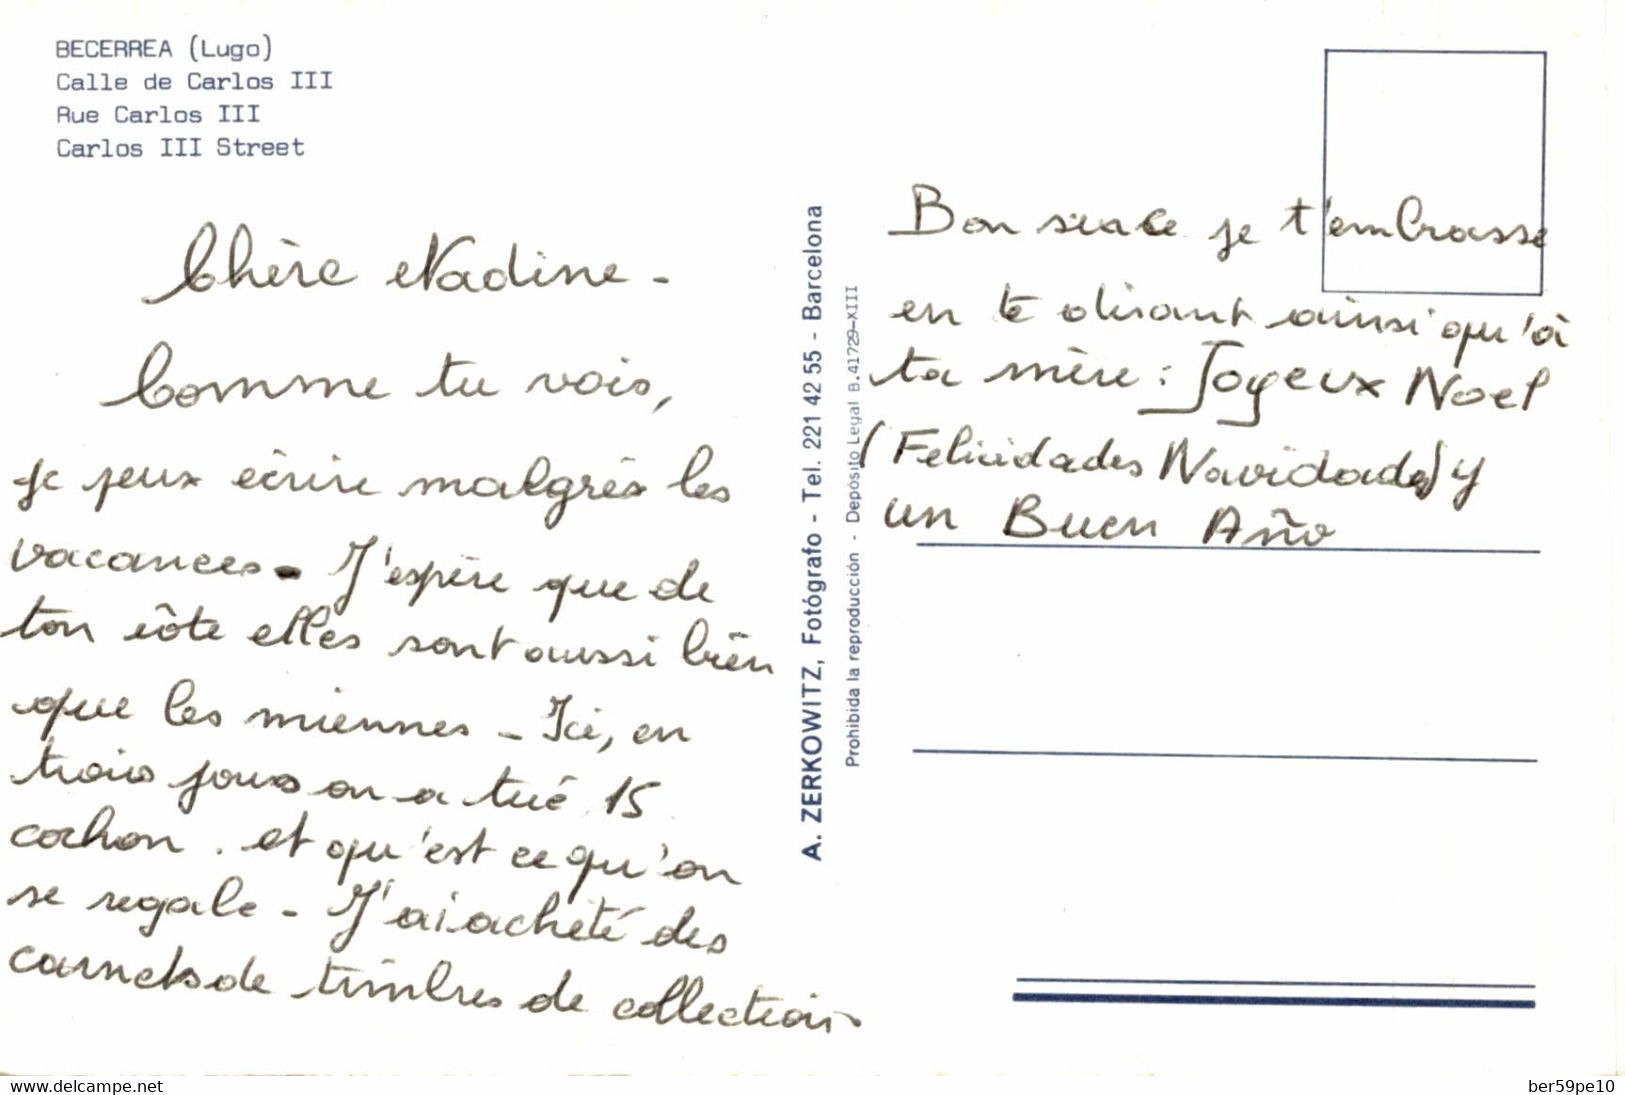 BECERREA (Lugo)
Calle de Carlos III
Rue Carlos III
Carlos III Street
Chère Nadine -
Comme tu vois,
je peux écrire malgrès les
vacances - J'espère que de
ton côte elles sont aussi bien
que les miennes - Ici, en
trois jours on a tué 15
cochon. et qu'est ce qu'on
se regale - J'ai acheté des
carnets de timbres de collection
A. ZERKOWITZ, Fotógrafo - Tel. 221 42 55 - Barcelona
Prohibida la reproducción - Depósito Legal B.41729-XIII
Bon je t'embrasse
en te disant ainsi qu'à
ta mère : Joyeux Noel
(Felicidades Navidades) y
un Buen Año
www.delcampe.net
ber59pe10